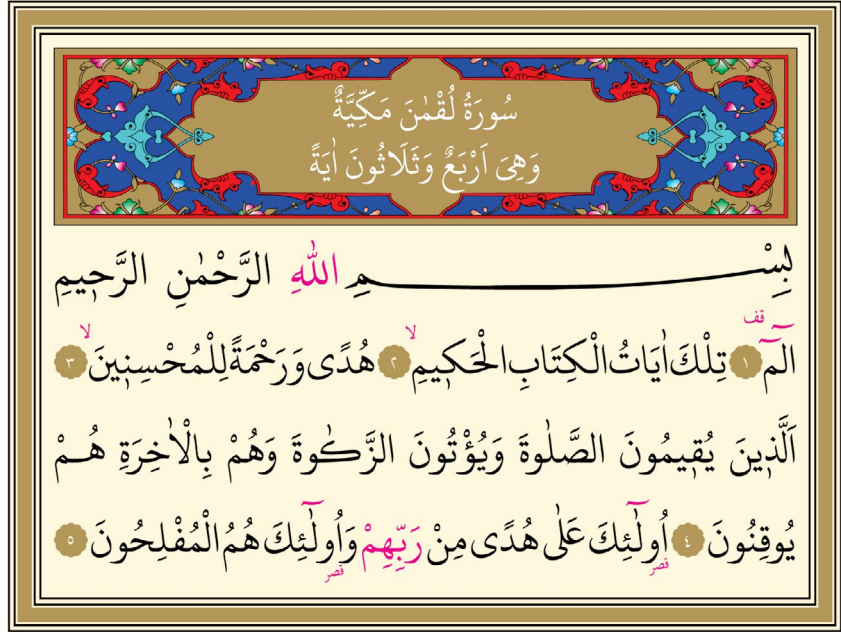 سُورَةُ لُقْمٰنَ مَكِّيَّةٌ
وَهِيَ اَرْبَعٌ وَثَلَاثُونَ اٰيَةً
بِسْمِ اللّٰهِ الرَّحْمٰنِ الرَّحٖيمِ
الٓمٓ ۗقف ﴿١﴾ تِلْكَ اٰيَاتُ الْكِتَابِ الْحَكٖيمِۙ ﴿٢﴾ هُدًى وَرَحْمَةً لِلْمُحْسِنٖينَۙ ﴿٣﴾
اَلَّذٖينَ يُقٖيمُونَ الصَّلٰوةَ وَيُؤْتُونَ الزَّكٰوةَ وَهُمْ بِالْاٰخِرَةِ هُمْ
يُوقِنُونَ ﴿٤﴾ اُولٰٓئِكَ عَلٰى هُدًى مِنْ رَبِّهِمْ وَاُولٰٓئِكَ هُمُ الْمُفْلِحُونَ ﴿٥﴾
قصر قصر